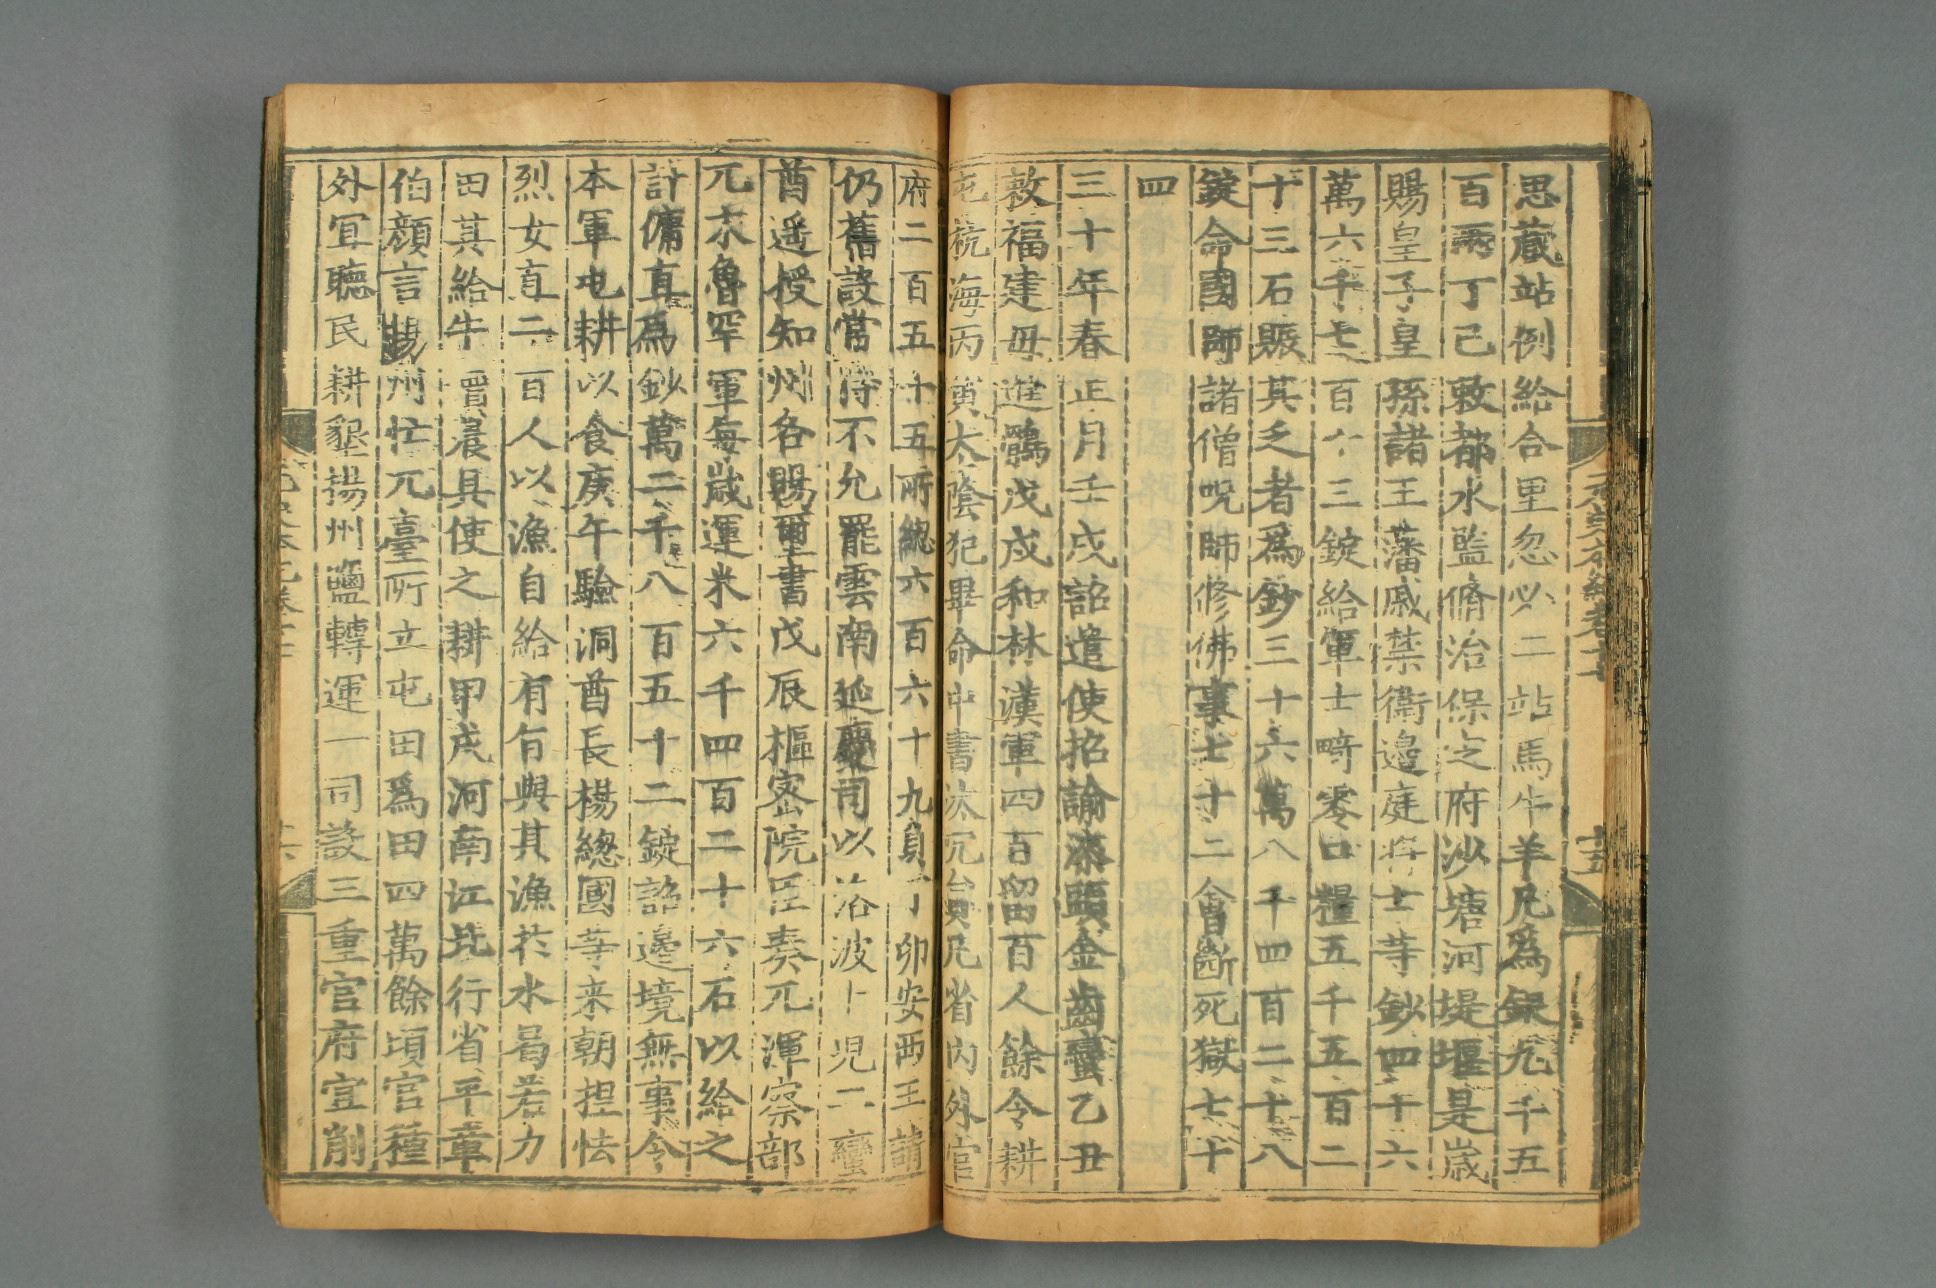 思蔵站例給合里忽必二站馬牛羊凡爲銀九千五
百兩丁巳敕都水監脩治保定府沙塘河堤堰是歲
賜皇子皇孫諸王藩戚禁衛邊庭將士等鈔四十六
萬六千七百一十三錠給軍士畸零口糧五千五百二
十三石賑其乏者爲鈔三十六萬八千四百二十八
錠命國師諸僧呪師修佛事七十二會斷死獄七十
四
三十年春正月壬戌詔遣使招諭漆頭金齒蠻乙丑
敕福建毋進鶻戊戌和林漢軍四百留百人餘令耕
屯杭海丙寅太陰犯畢命中書汰冗員凡省內外官
府二百五十五所總六百六十九員丁卯安西王請
仍舊設常侍不允罷雲南延慶司以洛波卜児二蠻
酋遥授知州各賜璽書戊辰樞密院臣奏兀渾察部
兀末魯罕軍每歲運米六千四百二十六石以給之
計傭直爲鈔萬二千八百五十二錠詔邊境無事令
本軍屯耕以食庚午驗洞酋長楊總國等来朝担怯
烈女直二百人以漁自給有旨與其漁於水曷若力
田其給牛價農具使之耕甲戌河南江北行省平章
伯顔言揚州忙兀臺所立屯田爲田四萬餘頃官種
外宜聽民耕墾揚州鹽轉運一司設三重官府宜削
元史本紀卷十七
十五
十六